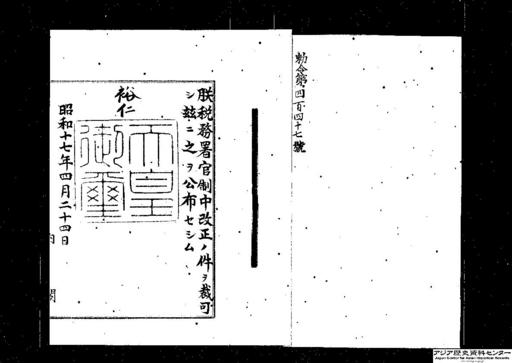 勅令第四百四十七號
朕税務署官制中改正ノ件ヲ裁可
シ茲ニ之ヲ公布セシム
裕仁
天皇
御璽
昭和十七年四月二十四日
内閣
アジア歴史資料センター
Japan Center for Asian Historical Records